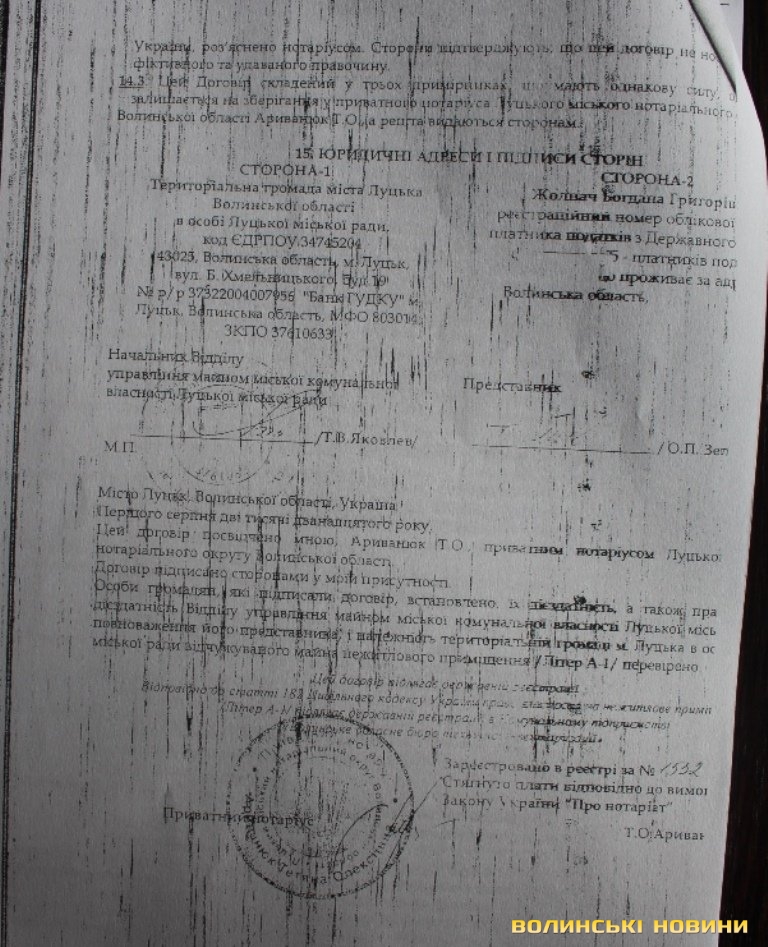 України, роз'яснено нотаріусом. Сторони підтверджують, що цей договір не но
фіктивного та удаваного правочину.
14.3. Цей Договір складений у трьох примірниках, що мають однакову силу,
залишається на зберігання у приватного нотаріуса Луцького міського нотаріального
Волинської області Ариванюк Т.О., а решта видаються сторонам.
15. ЮРИДИЧНІ АДРЕСИ І ПІДПИСИ СТОРІН
СТОРОНА-1
Територіальна громада міста Луцька
Волинської області
в особі Луцької міської ради,
код ЄДРПОУ 34745204
43025, Волинська область, м. Луцьк,
вул. Б. Хмельницького, буд.19
№ р/р 37322004007956 "Банк ГУДКУ" м.
Луцьк, Волинська область, МФО 803014,
ЗКПО 37610633
Начальник Відділу
управління майном міської комунальної
власності Луцької міської ради
/Т.В.Яковлев/
М.П.
СТОРОНА-2
Жолнач Богдана Григорі
реєстраційний номер облікової
платника податків з Державного
5 - платників под
о проживає за адр
Волинська область,
Представник
/ О.П. Зел
Місто Луцьк, Волинської області, Україна
Першого серпня дві тисячі дванадцятого року.
Цей договір посвідчено мною, Ариванюк Т.О., приватним нотаріусом Луцько
нотаріального округу Волинської області.
Договір підписано сторонами у моїй присутності.
Особи громадян, які підписали договір, встановлено, їх дієздатність, а також пра
дієздатність Відділу управління майном міської комунальної власності Луцької місь
повноваження його представника, і належність територіальній громаді м. Луцька в ос
міської ради відчужуваного майна нежитлового приміщення /Літер А-1/ перевірено.
Цей договір підлягає державній реєстрації.
Відповідно до статті 182 Цивільного кодексу України право власності на нежитлове примі
/Літер А-1/ підлягає державній реєстрації в комунальному підприємстві
«Волинське обласне бюро технічної інвентаризації»
Зареєстровано в реєстрі за № 1332
Стягнуто плати відповідно до вимог
Закону України "Про нотаріат"
Приватний нотаріус
Т.О.Арива
ВОЛИНСЬКІ НОВИНИ